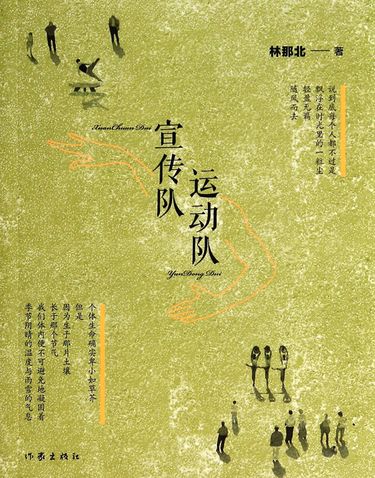 林那北——著
说到底每个人都不过是
飘浮在时光里的一粒尘
轻盈无羁
随风而去
XuanChuan Dui
宣传队
运动队
YunDong Dui
个体生命确实卑小如草芥
但是
因为生于那片土壤
长于那个节气
我们体内便不可避免地凝固着
季节阴晴的温度与雨雪的气息
作家出版社